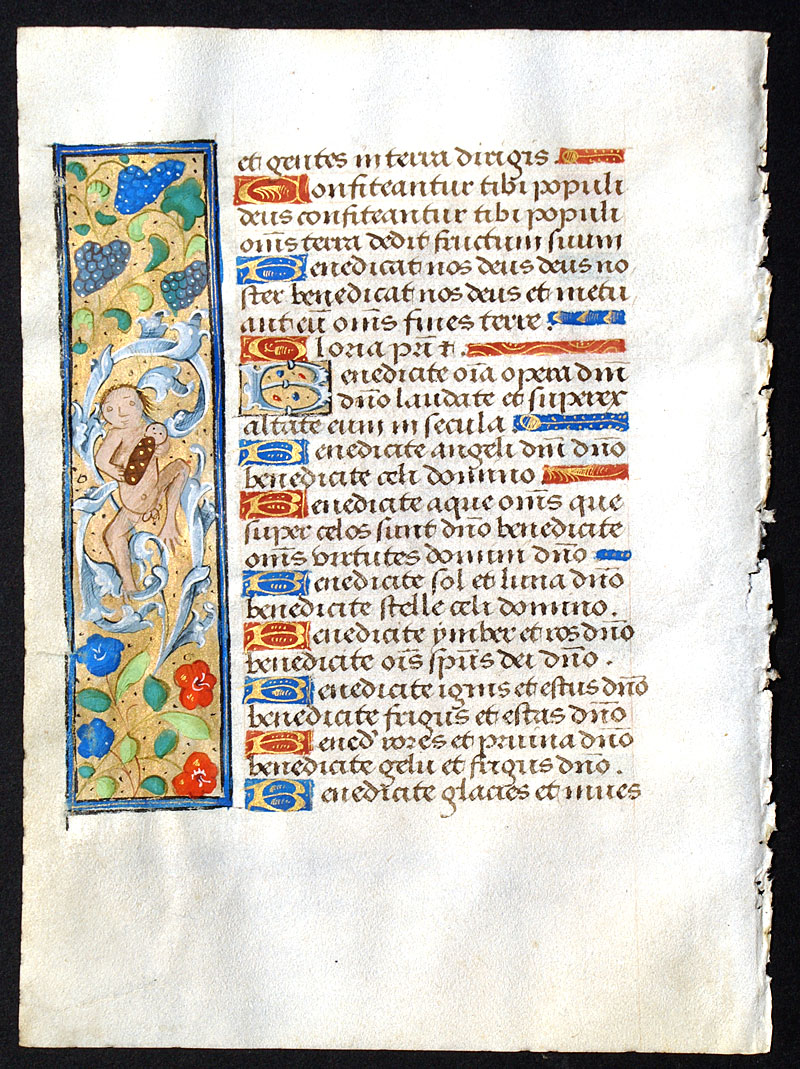 et gentes in terra dirigis.
Confiteantur tibi populi
deus confiteantur tibi populi
om̄s terra dedit fructum suum
Benedicat nos deus deus no
ster benedicat nos deus et metu
ant eū om̄s fines terre.
Gloria pr̄i ⁊.
Benedicite oīa opera dn̄i
dn̄o laudate et superex
altate eum in secula.
Benedicite angeli dn̄i dn̄o
benedicite celi domino
Benedicite aque om̄s que
super celos sunt dn̄o benedicite
om̄s virtutes domini dn̄o
Benedicite sol et luna dn̄o
benedicite stelle celi domino.
Benedicite ymber et ros dn̄o
benedicite oīs sp̄us dei dn̄o.
Benedicite ignis et estus dn̄o
benedicite frigus et estas dn̄o
Bened' rores et pruina dn̄o
benedicite gelu et frigus dn̄o.
Benedicite glacies et nives